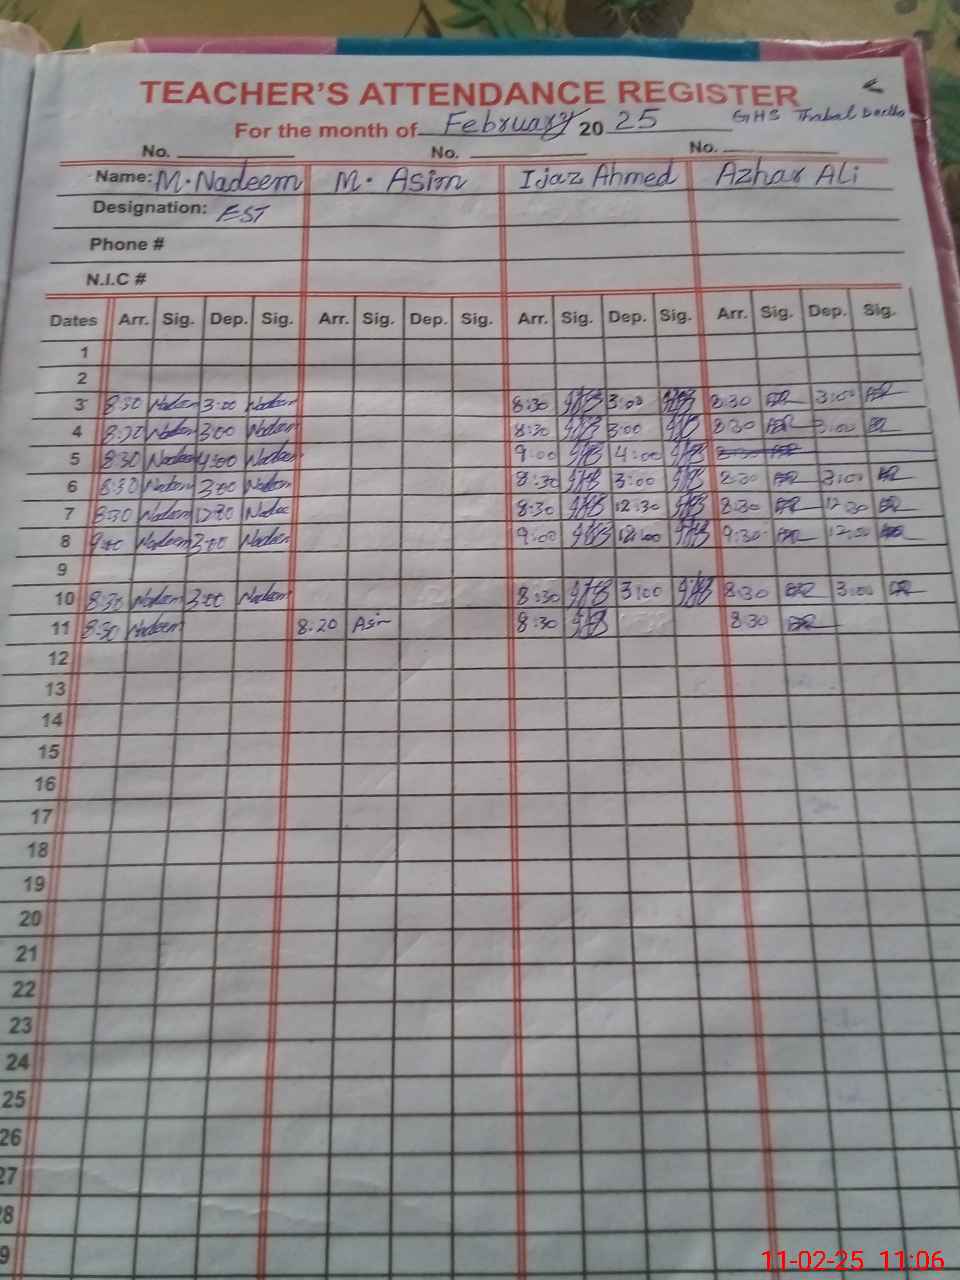 TEACHER'S ATTENDANCE REGISTER
For the month of February 2025 GHS Thabal
No. No. No.
Name: M. Nadeem M. Asim Ijaz Ahmed Azhar Ali
Designation: EST
Phone #
N.I.C #
Dates Arr. Sig. Dep. Sig. Arr. Sig. Dep. Sig. Arr. Sig. Dep. Sig. Arr. Sig. Dep. Sig.
1
2
3 8:30 Nadeem 3:00 Nadeem 8:30 3:00 8:30 3:00
4 8:30 Nadeem 3:00 Nadeem 8:30 3:00 8:30 3:00
5 8:30 Nadeem 4:00 Nadeem 9:00 4:00 8:30
6 8:30 Nadeem 3:00 Nadeem 8:30 3:00 8:30 3:00
7 8:30 Nadeem 12:30 Nadee 8:30 12:30 8:30 12:30
8 Nadeem Nadeem 9:00 12:00 9:30
9
10 8:30 Nadeem 3:00 Nadeem 8:30 3:00 8:30 3:00
11 8:30 Nadeem 8:20 Asim 8:30 8:30
12
13
14
15
16
17
18
19
20
21
22
23
24
25
26
27
28
9
11-02-25 11:06